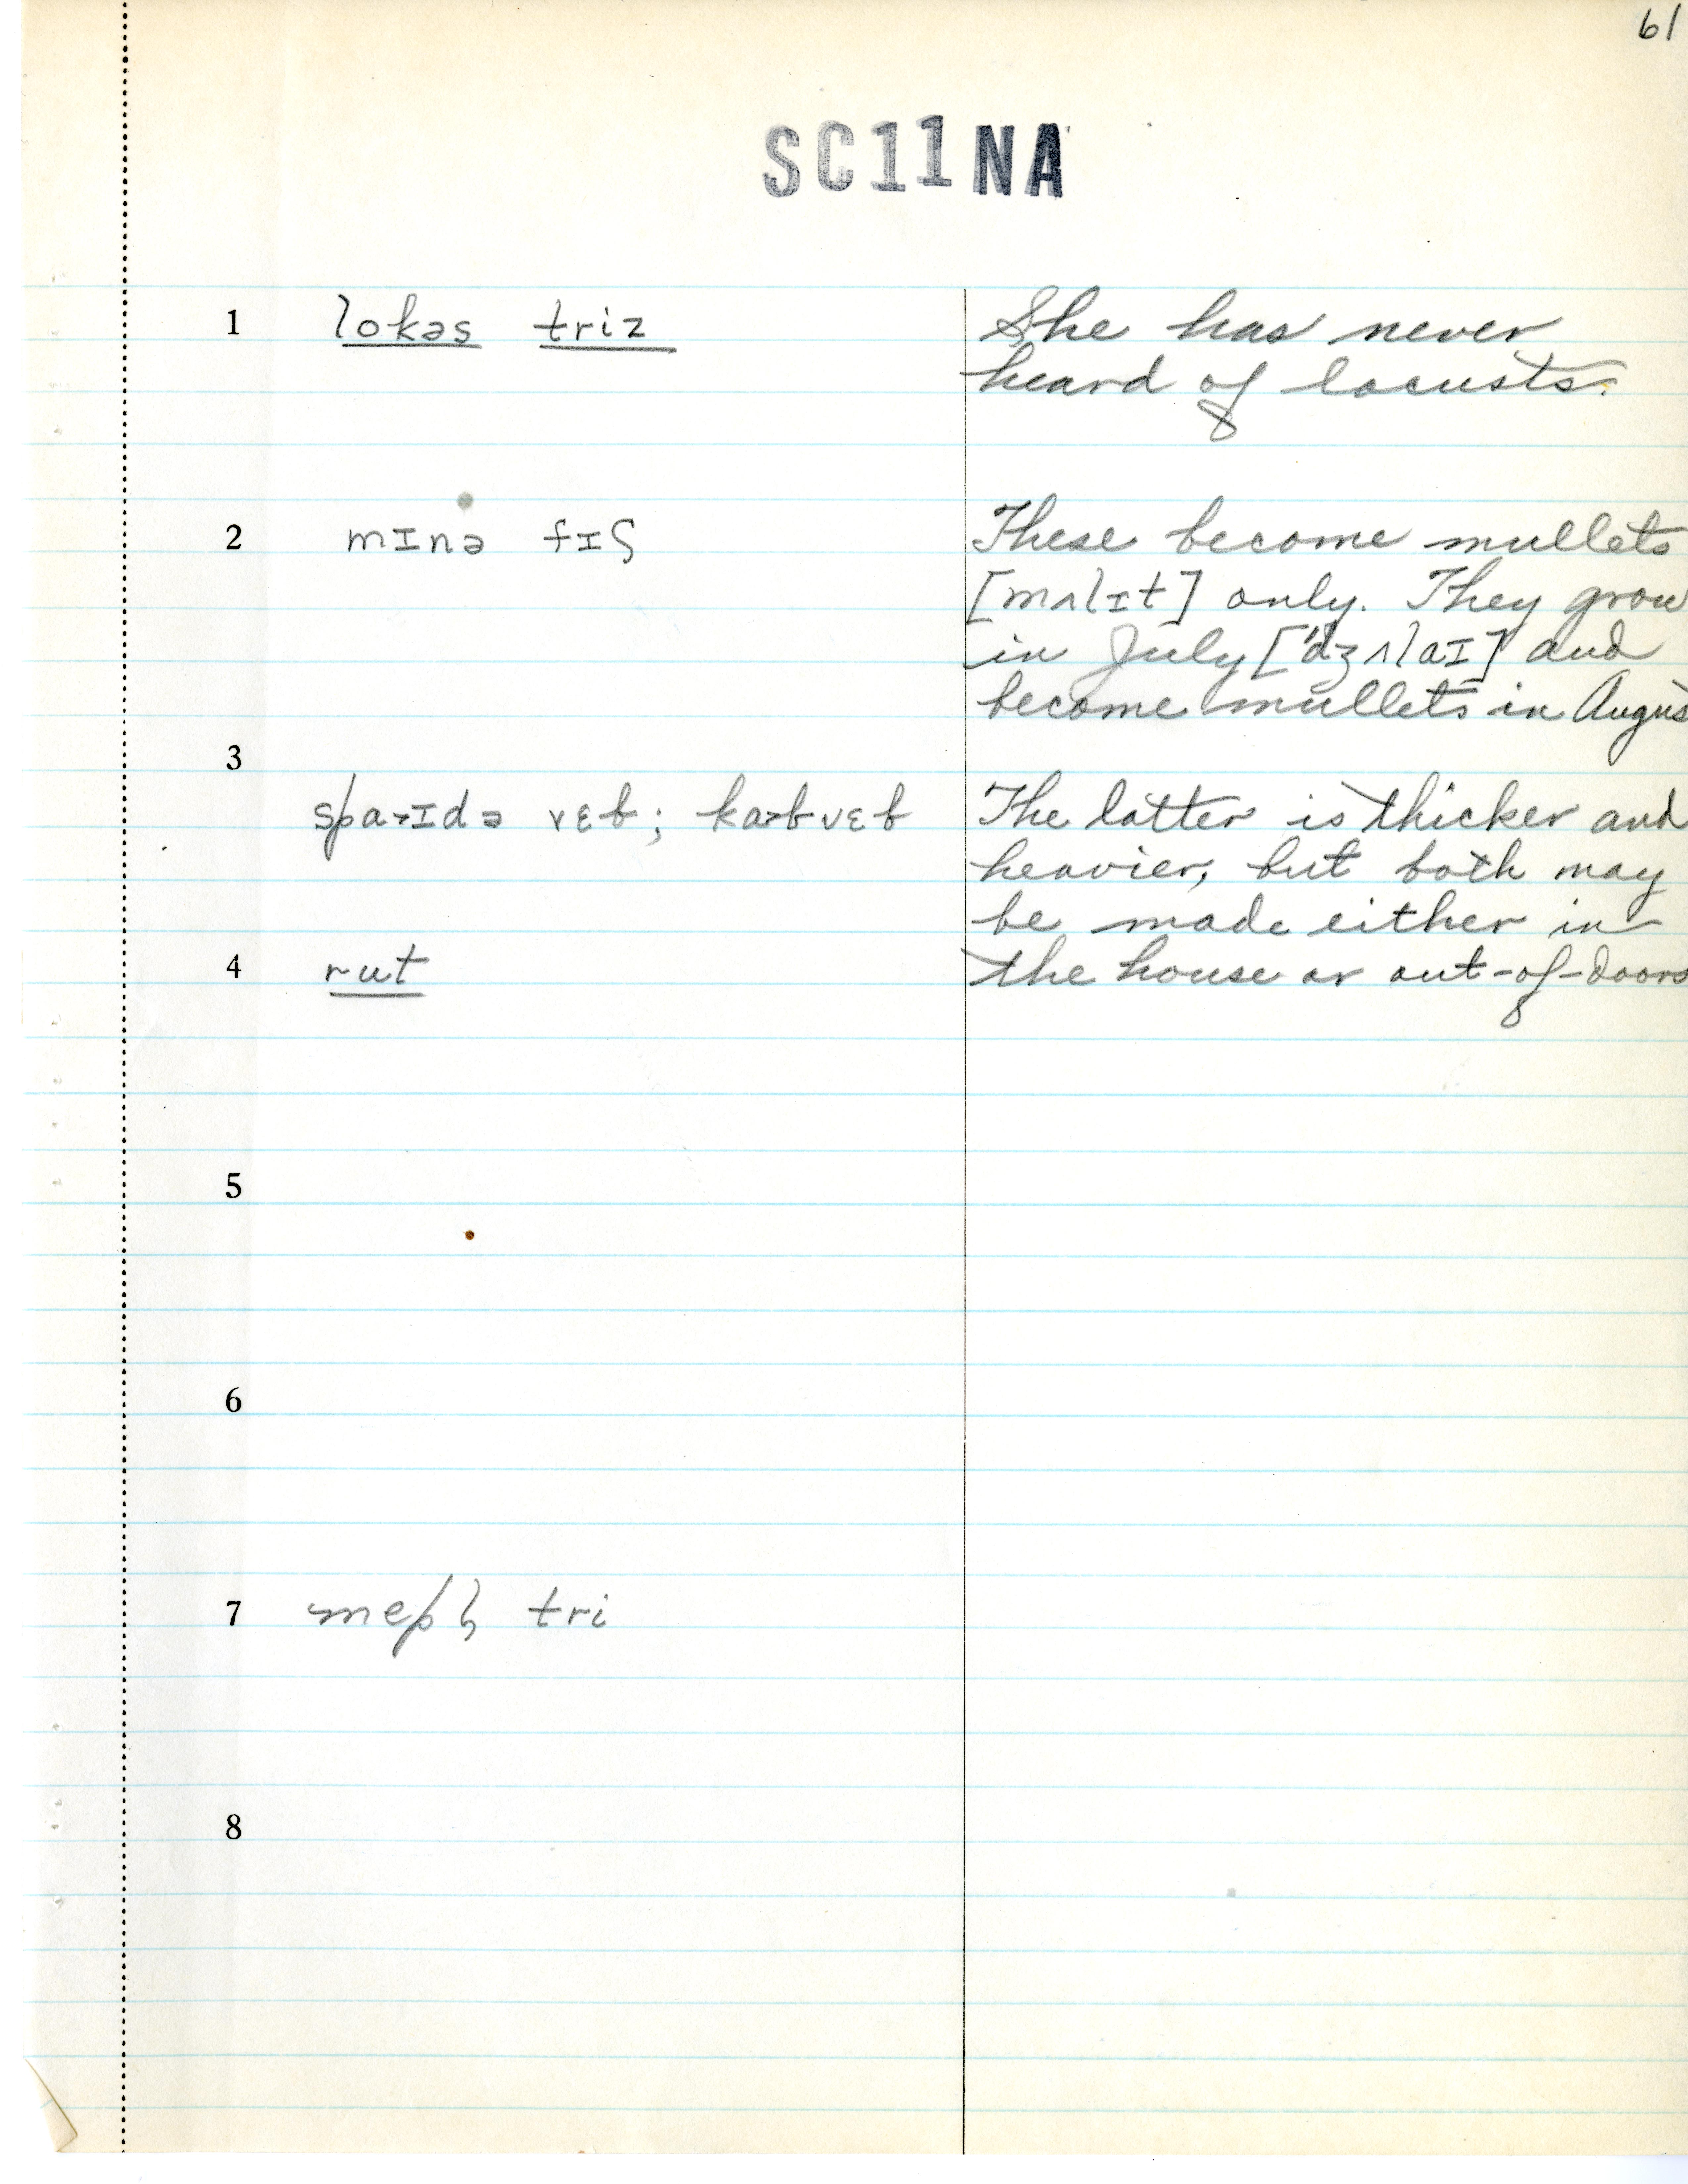 61
SC11NA
1 lokəs triz
She has never
heard of locusts.
2 mɪnə fɪʃ
These become mullets
[mʌlɪt] only. They grow
in July ['dʒʌlaɪ] and
become mullets in Augus
3
spa˃ɪdə vɛb; ka˃bvɛb
The latter is thicker and
heavier, but both may
be made either in
4 rut
the house or out-of-doors
5
6
7 mepl̩ tri
8